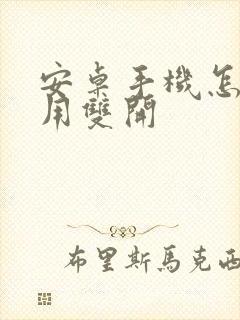 安桌手機怎
用雙開
布里斯馬克西